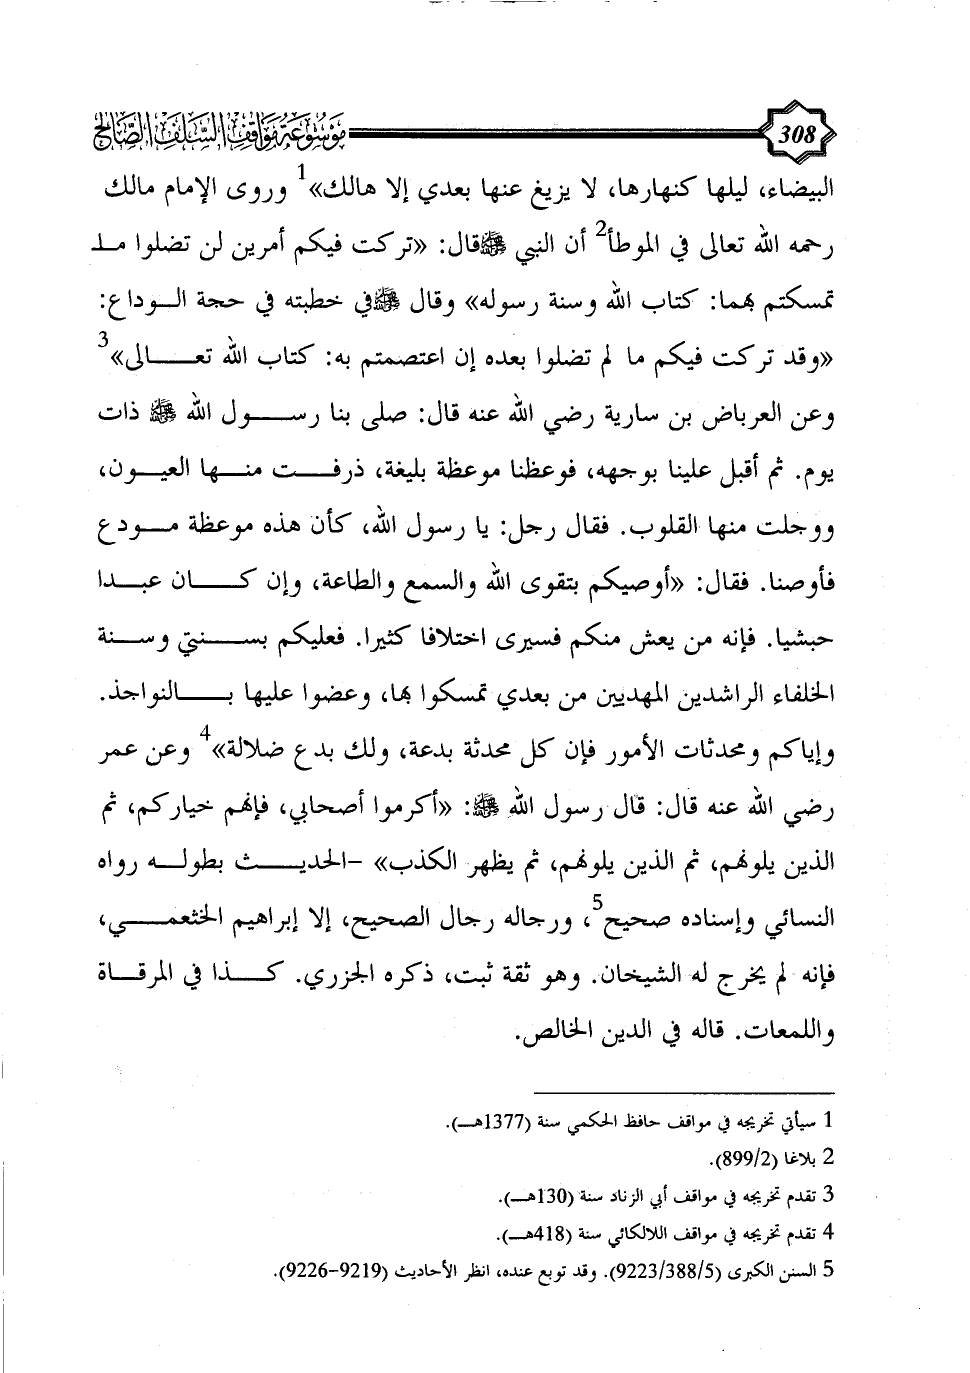 308
موسوعة مواقف السلف الصالح
البيضاء، ليلها كنهارها، لا يزيغ عنها بعدي إلا هالك»1 وروى الإمام مالك
رحمه الله تعالى في الموطأ2 أن النبي ﷺ قال: «تركت فيكم أمرين لن تضلوا مـا
تمسكتم بهما: كتاب الله وسنة رسوله» وقال ﷺ في خطبته في حجة الـوداع:
«وقد تركت فيكم ما لم تضلوا بعده إن اعتصمتم به: كتاب الله تعـالى»3
وعن العرباض بن سارية رضي الله عنه قال: صلى بنا رسـول الله ﷺ ذات
يوم. ثم أقبل علينا بوجهه، فوعظنا موعظة بليغة، ذرفـت منـها العيـون،
ووجلت منها القلوب. فقال رجل: يا رسول الله، كأن هذه موعظة مـودع
فأوصنا. فقال: «أوصيكم بتقوى الله والسمع والطاعة، وإن كـان عبـدا
حبشيا. فإنه من يعش منكم فسيرى اختلافا كثيرا. فعليكم بسـنتي وسـنة
الخلفاء الراشدين المهديين من بعدي تمسكوا بها، وعضوا عليها بـالنواجذ.
وإياكم ومحدثات الأمور فإن كل محدثة بدعة، ولك بدع ضلالة»4 وعن عمر
رضي الله عنه قال: قال رسول الله ﷺ: «أكرموا أصحابي، فإنهم خياركم، ثم
الذين يلونهم، ثم الذين يلونهم، ثم يظهر الكذب» -الحديـث بطولـه رواه
النسائي وإسناده صحيح5، ورجاله رجال الصحيح، إلا إبراهيم الخثعمـي،
فإنه لم يخرج له الشيخان. وهو ثقة ثبت، ذكره الجزري. كـذا في المرقـاة
واللمعات. قاله في الدين الخالص.
1 سيأتي تخريجه في مواقف حافظ الحكمي سنة (1377هـ).
2 بلاغا (899/2).
3 تقدم تخريجه في مواقف أبي الزناد سنة (130هـ).
4 تقدم تخريجه في مواقف اللالكائي سنة (418هـ).
5 السنن الكبرى (9223/388/5). وقد توبع عنده، انظر الأحاديث (9219-9226).